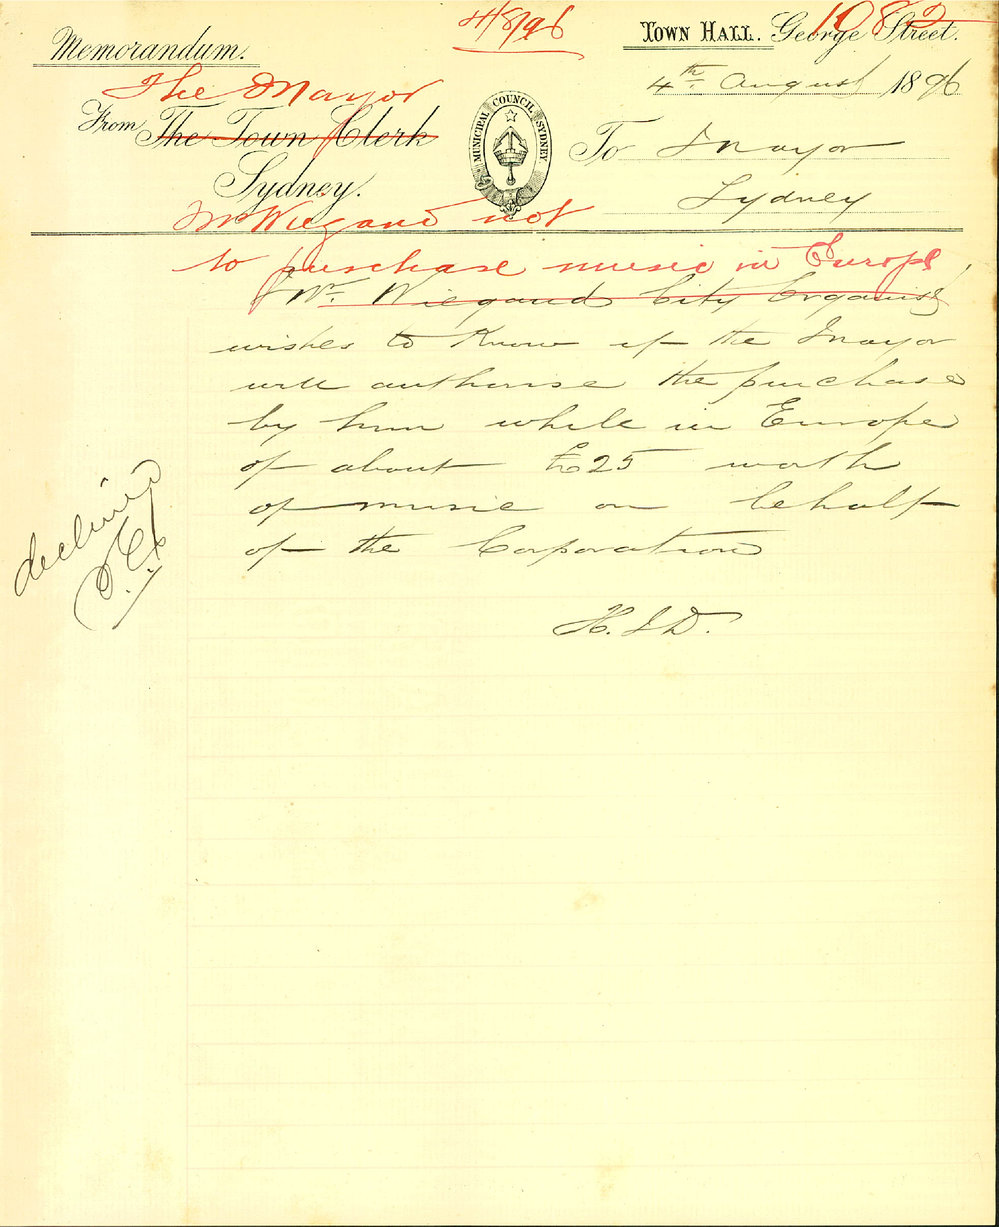 4/8/96
1082
Memorandum.
TOWN HALL. George Street.
The Mayor
4th August 1896
From The Town Clerk
MUNICIPAL COUNCIL SYDNEY.
To Mayor
Sydney.
Sydney
Mr Wiegand not
to purchase music in Europe
Mr. Wiegand City Organist
wishes to know if the Mayor
will authorise the purchase
by him while in Europe
of about £25 worth
of music on behalf
of the Corporation
declined
H.J.D.